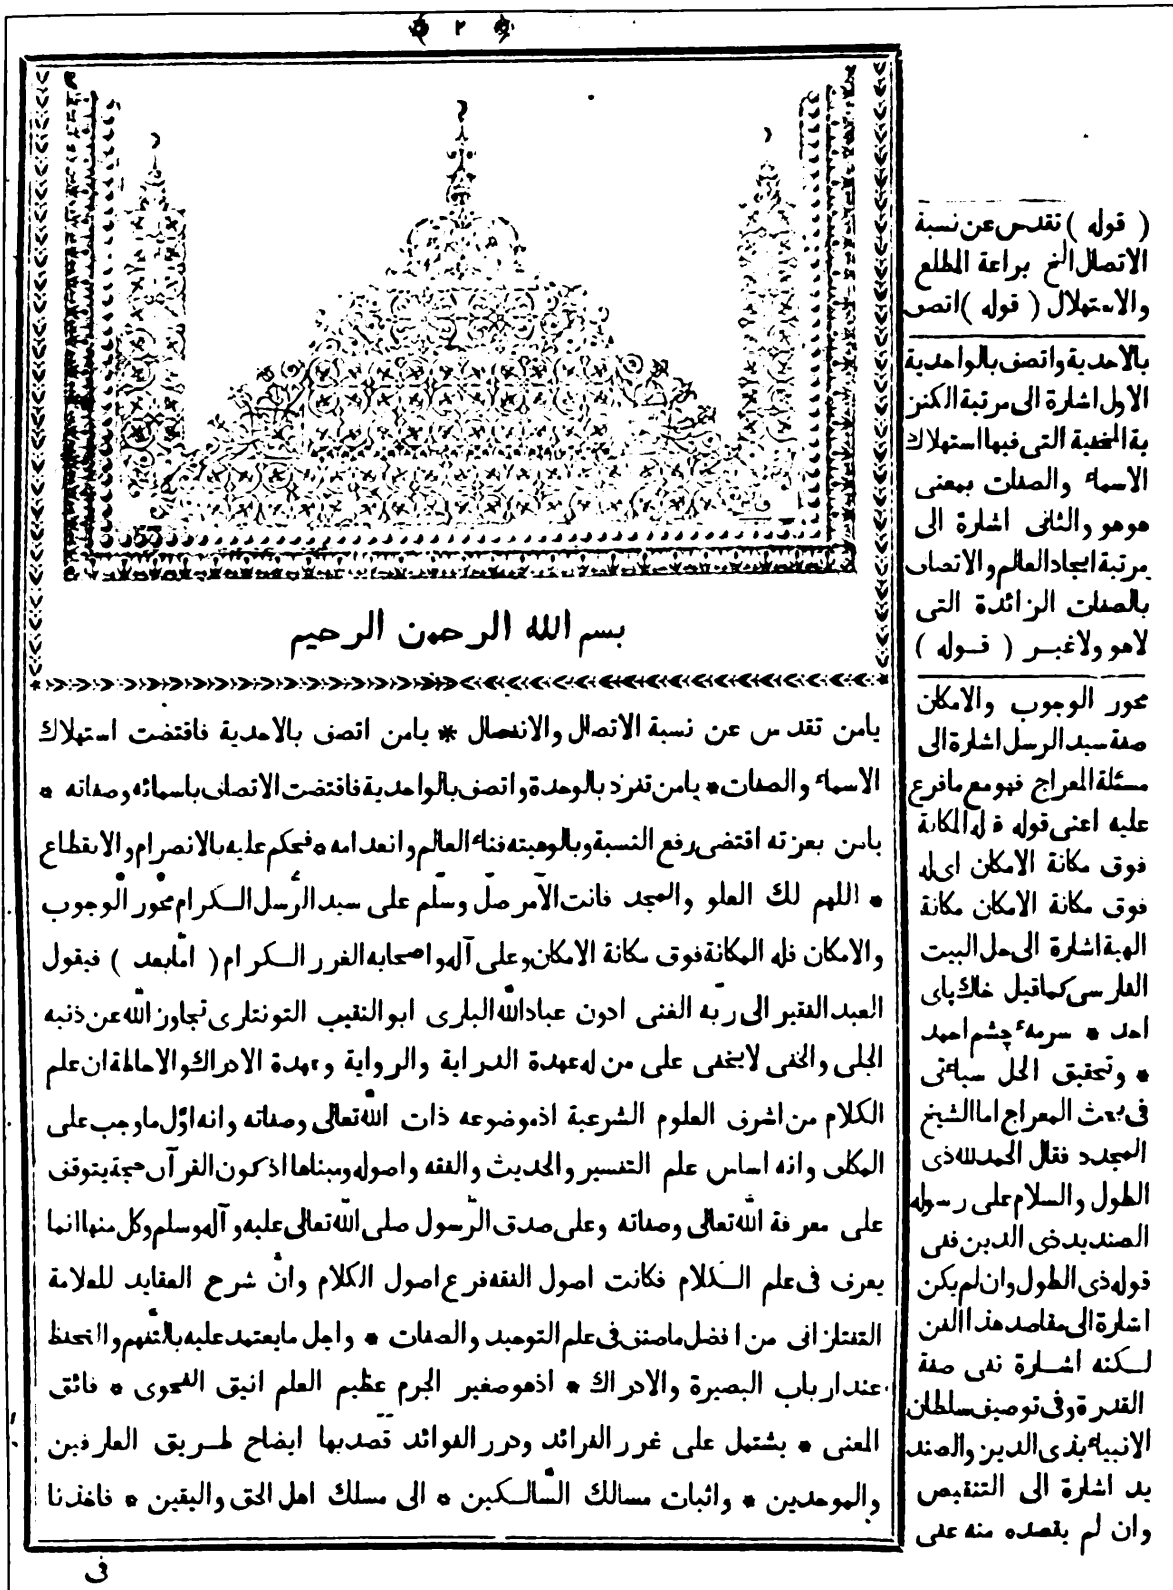 ﴿ ٢ ﴾
بسم الله الرحمن الرحيم
يامن تقدس عن نسبة الاتصال والانفصال * يامن اتصف بالاحدية فاقتضت استهلاك
الاسماء والصفات * يامن تفرد بالوحدة واتصف بالواحدية فاقتضت الاتصاف باسمائه وصفاته *
يامن بعزته اقتضى رفع النسبة وبالوهيته فناء العالم وانعدامه * فحكم عليه بالانصرام والانقطاع
* اللهم لك العلو والمجد فانت الآمر صلّ وسلّم على سيد الرّسل الكرام محور الوجوب
والامكان فله المكانة فوق مكانة الامكان وعلى آله واصحابه الغرر الكرام ( امّابعد ) فيقول
العبد الفقير الى ربّه الغنى ادون عباد اللّه البارى ابو النقيب التونتارى تجاوز اللّه عن ذنبه
الجلى والخفى لايخفى على من له عهدة الدراية والرواية وعهدة الادراك والاحاطة ان علم
الكلام من اشرف العلوم الشرعية اذموضوعه ذات اللّه تعالى وصفاته وانه اوّل ماوجب على
المكلف وانه اساس علم التفسير والحديث والفقه واصوله ومبناها اذ كون القرآن حجة يتوقف
على معرفة اللّه تعالى وصفاته وعلى صدق الرّسول صلى اللّه تعالى عليه وآله وسلم وكل منها انما
يعرف فى علم الكلام فكانت اصول الفقه فرع اصول الكلام وانّ شرح العقايد للعلامة
التفتازانى من افضل ماصنف فى علم التوحيد والصفات * واجل مايعتمد عليه بالتّفهم والتحفظ
عند ارباب البصيرة والادراك * اذهو صغير الجرم عظيم العلم انيق الفحوى * فائق
المعنى * يشتمل على غرر الفرائد ودرر الفوائد قصد بها ايضاح طريق العارفين
والموحدين * واثبات مسالك السّالكين * الى مسلك اهل الحق واليقين * فاخذنا
فى
( قوله ) تقدس عن نسبة
الاتصال الخ براعة المطلع
والاستهلال ( قوله ) اتصف
بالاحدية واتصف بالواحدية
الاول اشارة الى مرتبة الكنز
ية المخفية التى فيها استهلاك
الاسماء والصفات بمعنى
هوهو والثانى اشارة الى
مرتبة ايجاد العالم والاتصاف
بالصفات الزائدة التى
لاهو ولاغير ( قوله )
محور الوجوب والامكان
صفة سيد الرسل اشارة الى
مسئلة المعراج فهو مع مافرع
عليه اعنى قوله فله المكانة
فوق مكانة الامكان اى له
فوق مكانة الامكان مكانة
الهية اشارة الى حل البيت
الفارسى كما قيل خاك پاى
احد * سرمهء چشم احمد
* وتحقيق الحل سيأتى
فى بحث المعراج اما الشيخ
المجدد فقال الحمد لله ذى
الطول والسلام على رسوله
الصنديد ذى الدين ففى
قوله ذى الطول وان لم يكن
اشارة الى مقاصد هذا الفن
لكنه اشارة نفى صفة
القدرة وفى توصيف سلطان
الانبياء بذى الدين والصند
يد اشارة الى التنقيص
وان لم يقصده منه على